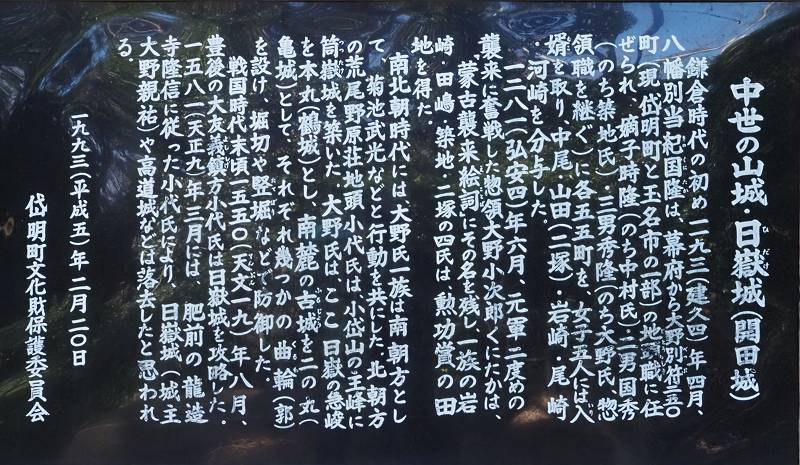 中世の山城・日嶽城(開田城)
鎌倉時代の初め一一九三(建久四)年四月、
八幡別当紀国隆は、幕府から大野別符二三〇
町(現岱明町と玉名市の一部)の地頭職に任
ぜられ、嫡子時隆(のち中村氏)二男国秀
(のち築地氏)・三男秀隆(のち大野氏、惣
領職を継ぐ)に各五五町を、女子五人には入
婿を取り中尾・山田(二塚)・岩崎・尾崎
・河崎を分与した。
一二八一(弘安四)年六月、元軍二度めの
襲来に奮戦した惣領大野小次郎くにたかは、
蒙古襲来絵詞にその名を残し一族の岩
崎・田嶋・築地・二塚の四氏は、勲功賞の田
地を得た
南北朝時代には大野氏一族は南朝方とし
て、菊池武光などと行動を共にした。北朝方
の荒尾野原荘地頭小代氏は、小岱山の王峰に
筒嶽城を築いた 大野氏は ここ日嶽の急峻
を本丸(鶴城)とし、南麓の古城を二の丸(
亀城)として、それぞれ幾つかの曲輪(郭)
を設け、堀切や竪堀などで防御した。
戦国時代末頃一五五〇(天文一九)年八月、
豊後の大友義鎮方小代氏は日嶽城を攻略した・
一五八一(天正九)年三月には 肥前の龍造
寺隆信に従った小代氏により、日嶽城(城主
大野親祐)や高道城などは落去したと思われ
る。
一九九三(平成五)年二月二〇日
岱明町文化財保護委員会